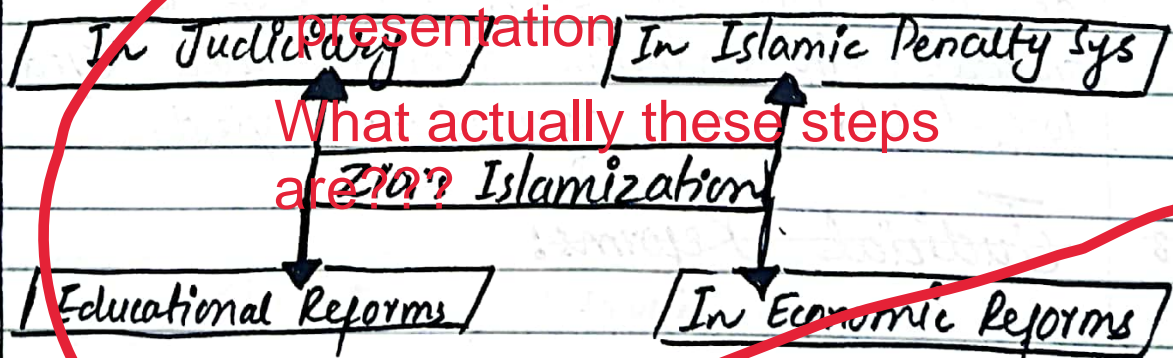 presentation
In Judiciary
In Islamic Penalty Sys
What actually these steps
are???
Zia's Islamization
Educational Reforms
In Economic Reforms